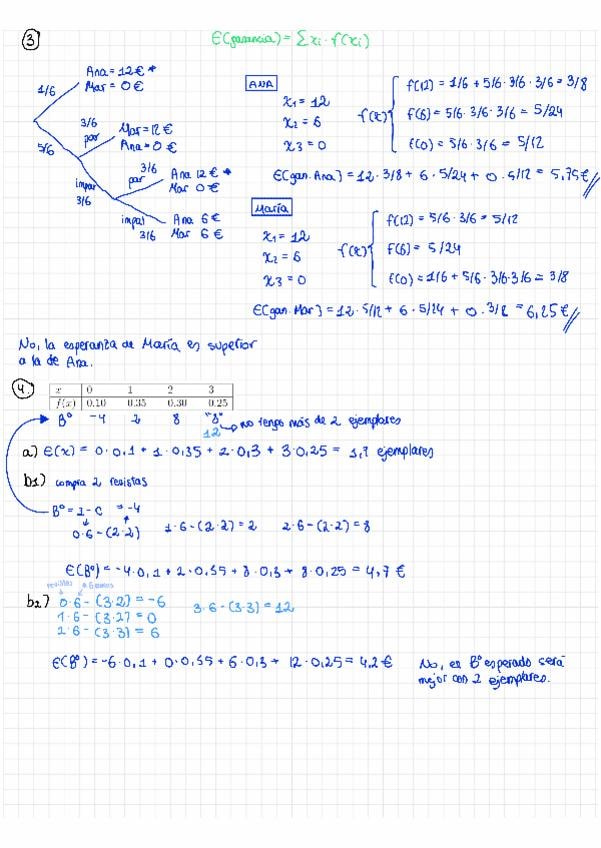 3 E(ganancia) = Σxi · f(xi)
1/6 Ana = 12€ *
Mar = 0€
5/6
3/6 par Mar = 12€
Ana = 0€
impar 3/6
3/6 par Ana 12€ *
Mar 0€
impar 3/6 Ana 6€
Mar 6€
ANA
x1 = 12
x2 = 6
x3 = 0
f(x)
f(12) = 1/6 + 5/6 · 3/6 · 3/6 = 3/8
f(6) = 5/6 · 3/6 · 3/6 = 5/24
f(0) = 5/6 · 3/6 = 5/12
E(gan. Ana) = 12 · 3/8 + 6 · 5/24 + 0 · 5/12 = 5,75€//
María
x1 = 12
x2 = 6
x3 = 0
f(x)
f(12) = 5/6 · 3/6 = 5/12
f(6) = 5/24
f(0) = 1/6 + 5/6 · 3/6 · 3/6 = 3/8
E(gan. Mar) = 12 · 5/12 + 6 · 5/24 + 0 · 3/8 = 6,25€//
No, la esperanza de María es superior
a la de Ana.
4.
x 0 1 2 3
f(x) 0.10 0.35 0.30 0.25
Bº -4 2 8 "8" → no tengo más de 2 ejemplares
12
a) E(x) = 0 · 0,1 + 1 · 0,35 + 2 · 0,3 + 3 · 0,25 = 1,7 ejemplares
b1) compra 2 revistas
Bº = I - C = -4
0·6 - (2·2) 1·6 - (2·2) = 2 2·6 - (2·2) = 8
E(Bº) = -4 · 0,1 + 2 · 0,35 + 8 · 0,3 + 8 · 0,25 = 4,7 €
revistas a 6 euros
b2) 0·6 - (3·2) = -6 3·6 - (3·3) = 12
1·6 - (3·2) = 0
2·6 - (3·3) = 6
E(Bº) = -6 · 0,1 + 0 · 0,35 + 6 · 0,3 + 12 · 0,25 = 4,2 € No, es Bº esperado será
mejor con 2 ejemplares.